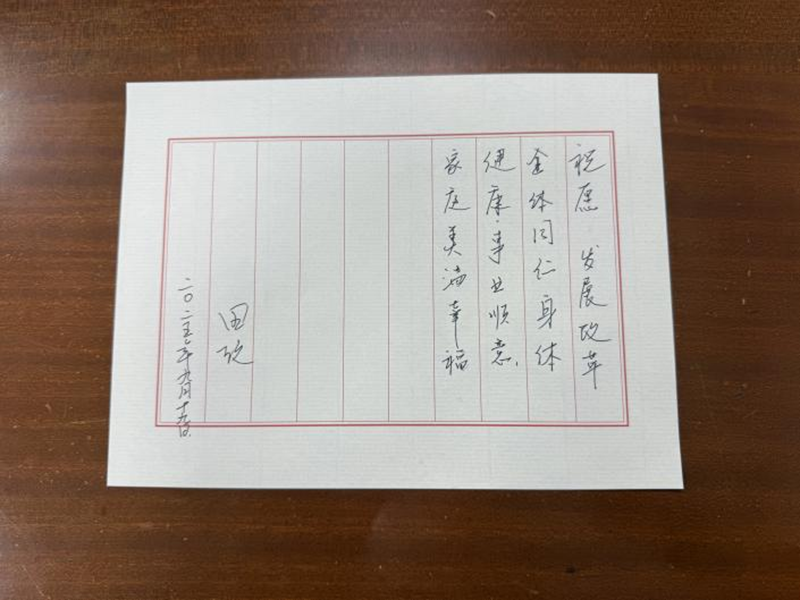 祝愿 发展改革
全体同仁身体
健康、事业顺意、
家庭美满幸福
田
二〇二五年九月十